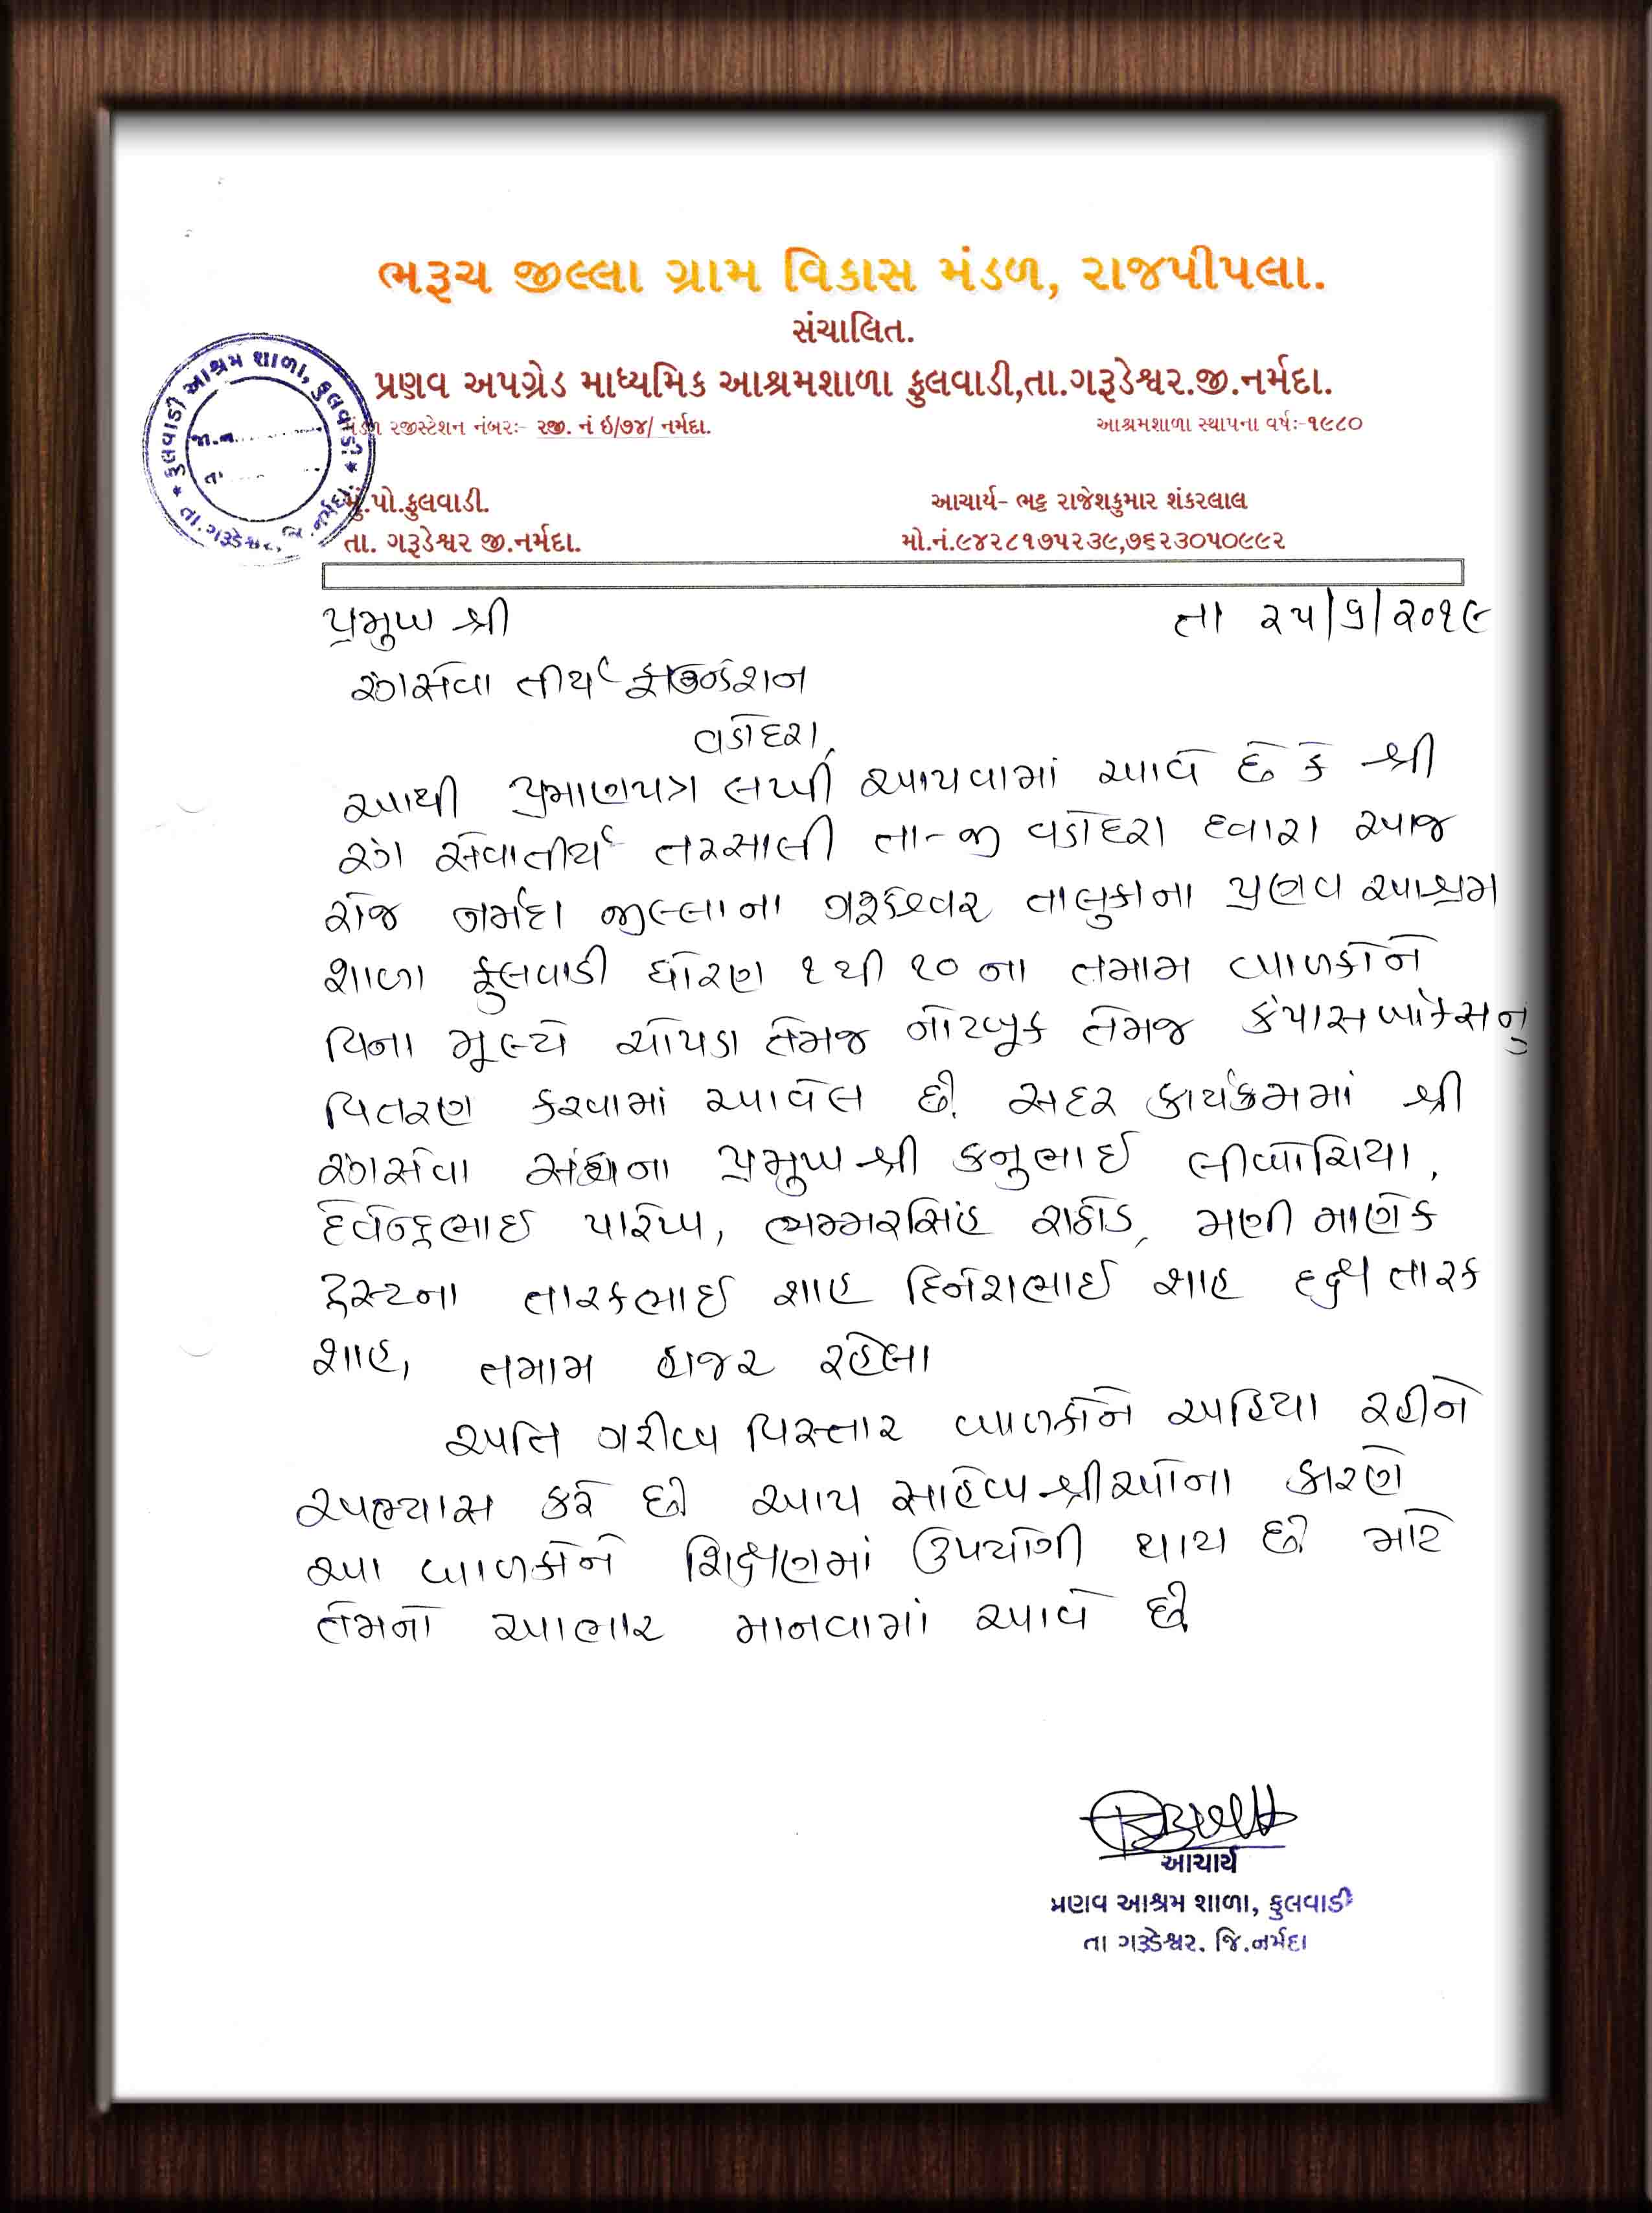 ભરૂચ જીલ્લા ગ્રામ વિકાસ મંડળ, રાજપીપલા.
સંચાલિત.
પ્રણવ અપગ્રેડ માધ્યમિક આશ્રમશાળા ફુલવાડી,તા.ગરૂડેશ્વર.જી.નર્મદા.
મંડળ રજીસ્ટેશન નંબરઃ- રજી. નં ઇ/૭૪/ નર્મદા.
આશ્રમશાળા સ્થાપના વર્ષઃ-૧૯૮૦
ફુલવાડી આશ્રમ શાળા, ફુલવાડી
જા.ન.
તા
તા.ગરૂડેશ્વર, જિ.નર્મદા.
મું.પો.ફુલવાડી.
આચાર્ય- ભટ્ટ રાજેશકુમાર શંકરલાલ
તા. ગરૂડેશ્વર જી.નર્મદા.
મો.નં.૯૪૨૮૧૭૫૨૩૯,૭૬૨૩૦૫૦૯૯૨
પ્રમુખ શ્રી
તા ૨૫/૬/૨૦૧૯
રંગસેવા તીર્થ ફાઉન્ડેશન
વડોદરા,
આથી પ્રમાણપત્ર લખી આપવામાં આવે છે કે શ્રી
રંગ સેવાતીર્થ તરસાલી તા-જી વડોદરા દ્વારા આજ
રોજ નર્મદા જીલ્લાના ગરૂડેશ્વર તાલુકાના પ્રણવ આશ્રમ
શાળા ફુલવાડી ધોરણ ૧થી ૧૦ ના તમામ બાળકોને
વિના મૂલ્યે ચોપડા તેમજ નોટબૂક તેમજ કંપાસબોક્સનુ
વિતરણ કરવામાં આવેલ છે. સદર કાર્યક્રમમાં શ્રી
રંગસેવા સંઘના પ્રમુખશ્રી કનુભાઈ લીંબાશિયા,
દેવેન્દ્રભાઈ પારેખ, ભમ્મરસિંહ રાઠોડ, મણી માણેક
ટ્રસ્ટના તારકભાઈ શાહ દિનેશભાઈ શાહ દક્ષ તારક
શાહ, તમામ હાજર રહેલા
અતિ ગરીબ વિસ્તાર બાળકોને અહિયા રહીને
અભ્યાસ કરે છે. આપ સાહેબશ્રીઓના કારણે
આ બાળકોને શિક્ષણમાં ઉપયોગી થાય છે. માટે
તેમનો આભાર માનવામાં આવે છે.
આચાર્ય
પ્રણવ આશ્રમ શાળા, ફુલવાડી
તા ગરૂડેશ્વર. જિ.નર્મદા